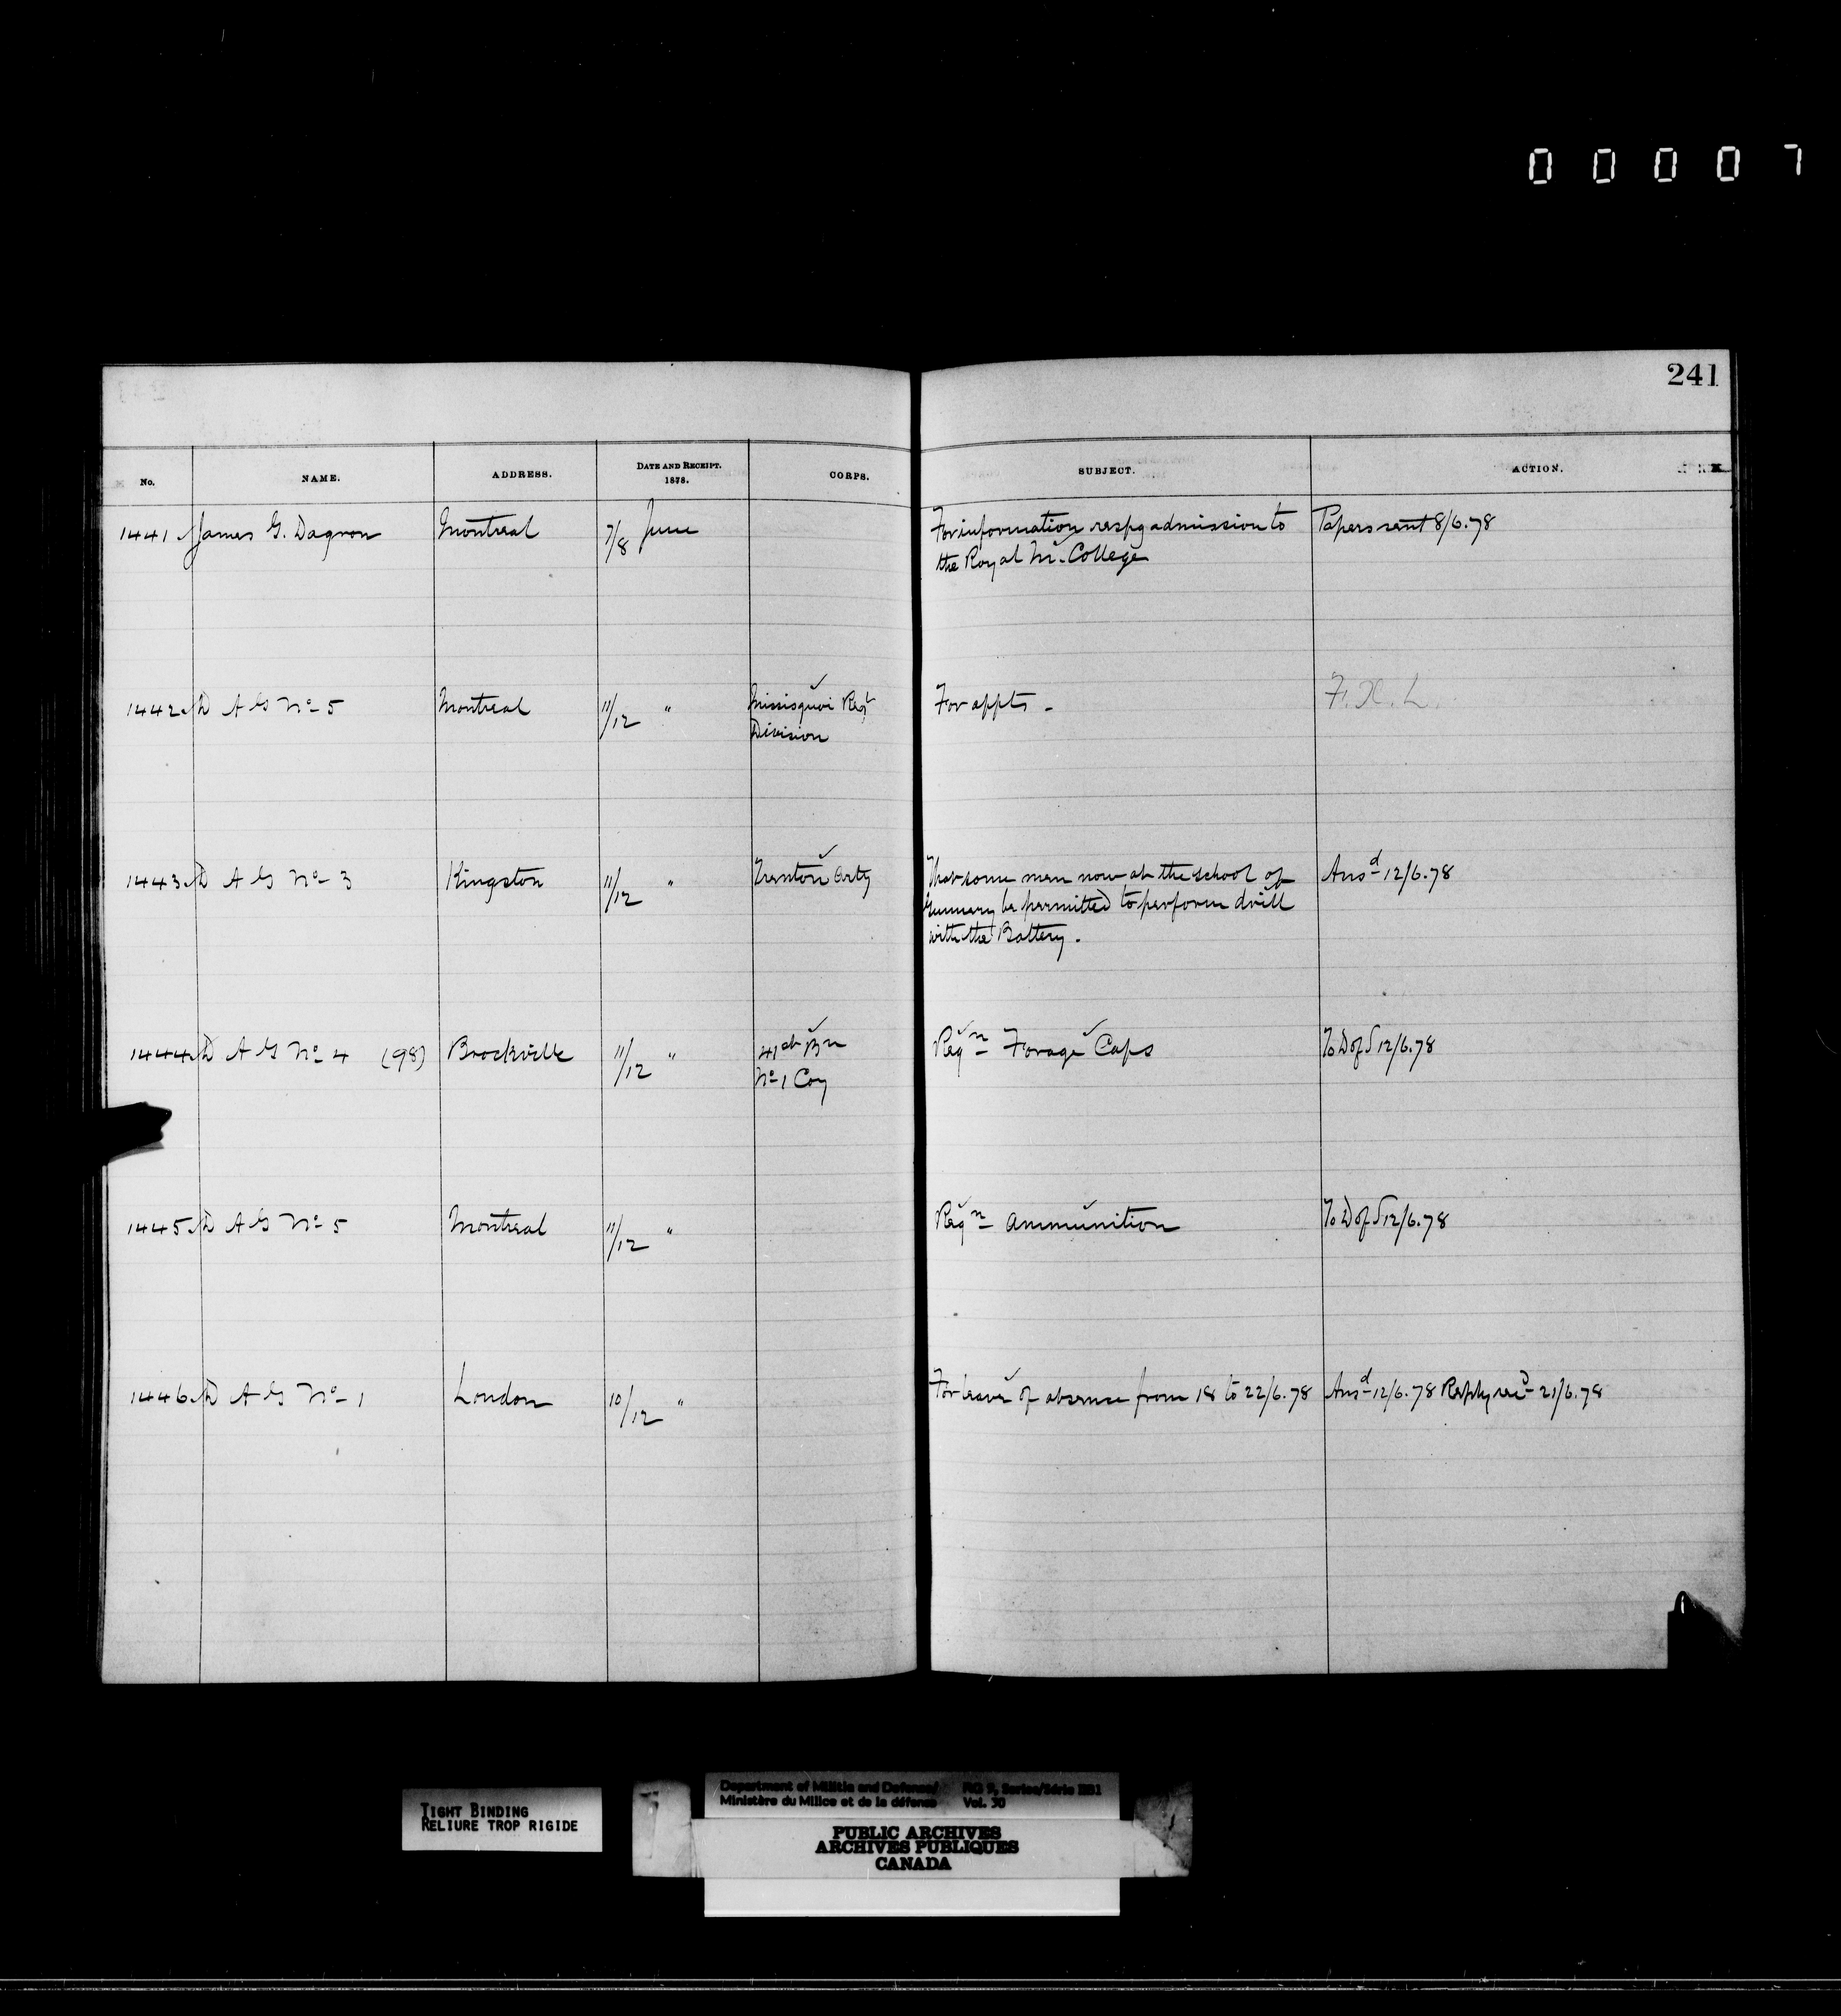 00007
241
No. NAME. ADDRESS. DATE AND RECEIPT. 1878. CORPS. SUBJECT. ACTION.
1441 James G. Dagron Montreal 7/8 June For information respg admission to Papers sent 8/6.78
the Royal Ml. College
1442 D A G No 5 Montreal 11/12 " Missisquoi Regt For appts - F.X.L.
Division
1443 D A G No 3 Kingston 11/12 " Trenton Arty That some men now at the School of Ansd 12/6.78
Gunnery be permitted to perform drill
with the Battery.
1444 D A G No 4 (98) Brockville 11/12 " 41st Bn Reqn Forage Caps To D of S 12/6.78
No 1 Coy
1445 D A G No 5 Montreal 11/12 " Reqn ammunition To D of S 12/6.78
1446 D A G No 1 London 10/12 " For leave of absence from 18 to 22/6.78 Ansd 12/6.78 Reply recd 21/6.78
TIGHT BINDING
RELIURE TROP RIGIDE
Department of Militia and Defense/ RG 9, Series/Série IIB1
Ministère du Milice et de la défense Vol. 30
PUBLIC ARCHIVES
ARCHIVES PUBLIQUES
CANADA